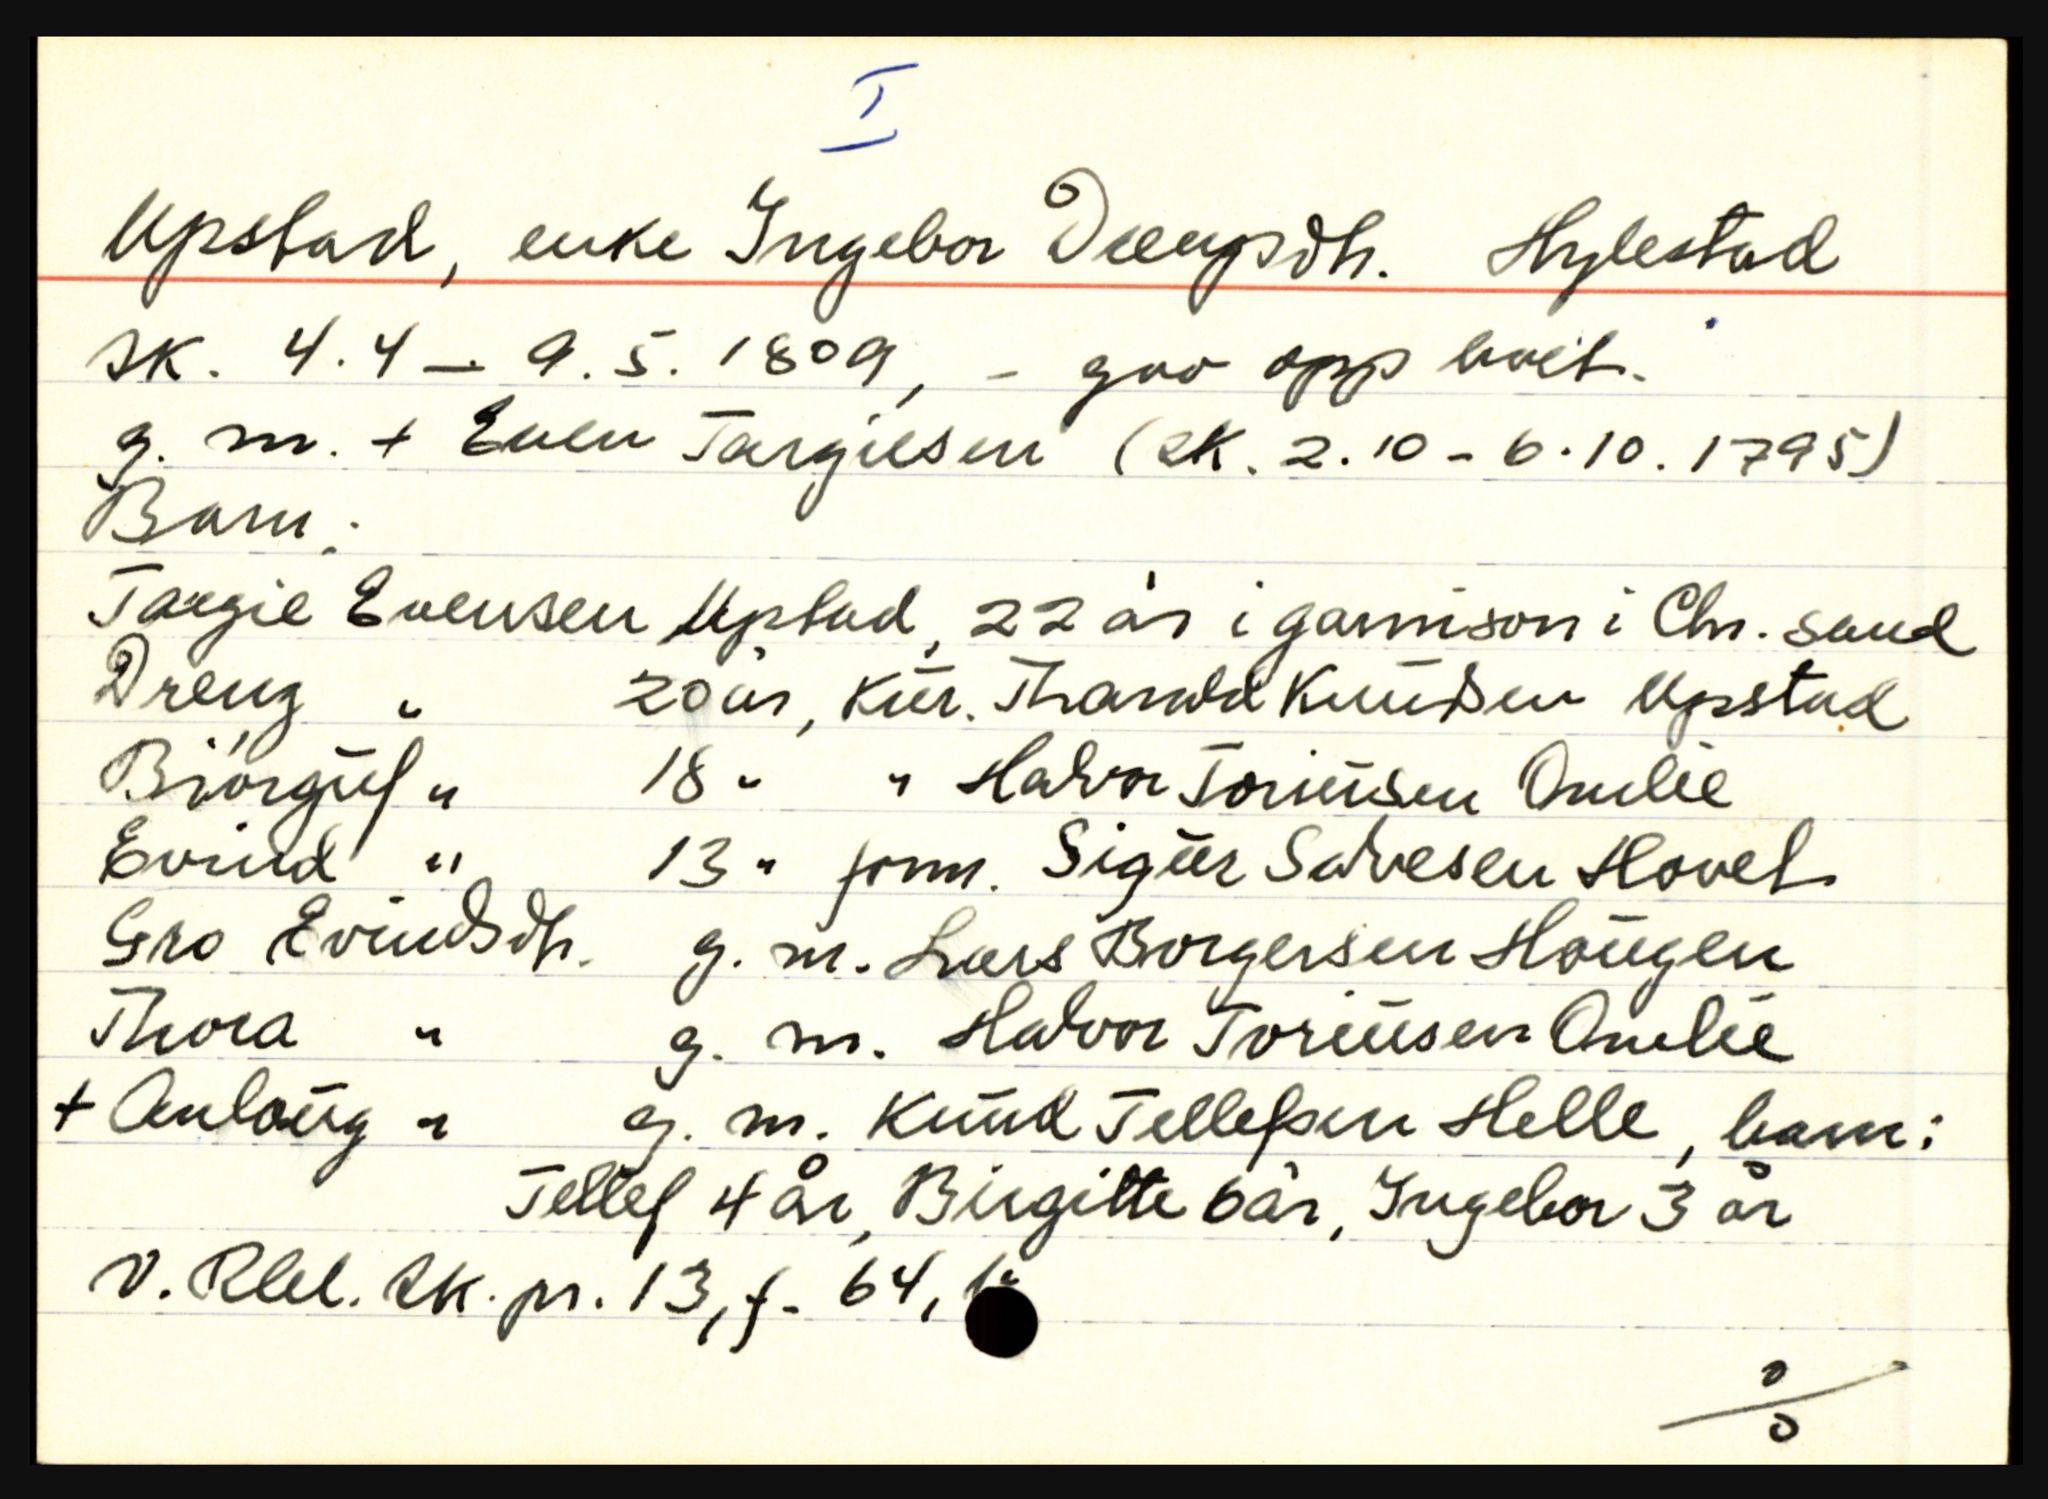 I
Upstad, enke Ingebor Drengsdtr. Hylestad
sk. 4.4 - 9.5. 1809, - gav opp boet.
g. m. + Even Targiesen (sk. 2.10 - 6.10.1795)
Barn:
Targie Evensen Upstad, 22 år i garnison i Chr. sand
Dreng " 20 år, kur. Tharald Knudsen Upstad
Biørguf " 18 " " Halvor Toriusen Omlie
Evind " 13 " form. Sigur Salvesen Hovet
Gro Evindsdtr. g. m. Lars Borgersen Hougen
Thora " g. m. Halvor Toriusen Omlie
+ Anloug " g. m. Knud Tellefsen Helle, barn:
Tellef 4 år, Birgitte 6 år, Ingebor 3 år
V. Rbd. sk. pr. 13, f. 64,